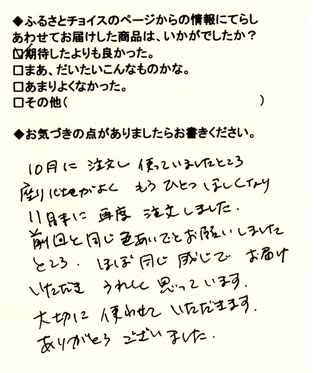 ◆ふるさとチョイスのページからの情報にてらし
あわせてお届けした商品は、いかがでしたか？
☑期待したよりも良かった。
□まあ、だいたいこんなものかな。
□あまりよくなかった。
□その他(　　　　　　　　　　　　　　)
◆お気づきの点がありましたらお書きください。
10月に 注文し 使っていましたところ
座り心地がよく もう ひとつ ほしくなり
11月末に 再度 注文しました。
前回と同じ色あいでとお願いしました
ところ、ほぼ同じ感じで お届け
いただき うれしく 思っています。
大切に 使わせて いただきます。
ありがとう ございました。